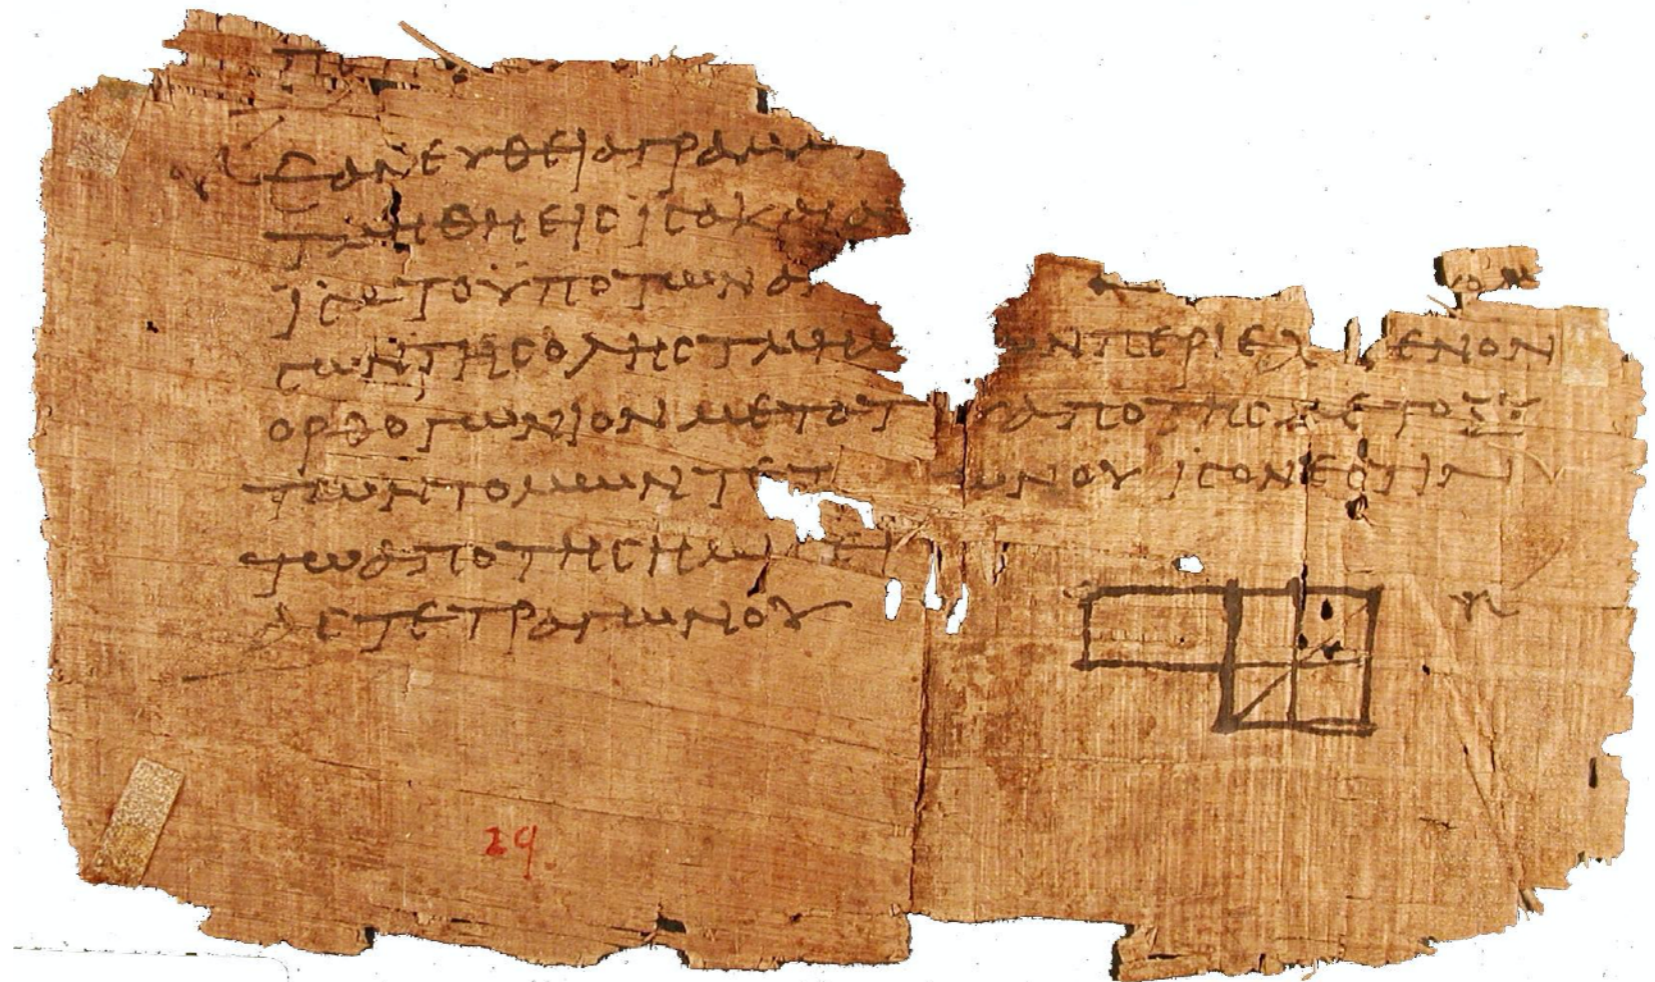 ΕΑΝ ΕΥΘΕΙΑ ΓΡΑΜΜ
ΤΜΗΘΗ ΕΙϹ ΙϹΑ ΚΑΙ Α
ΙϹΑ ΤΟ ΥΠΟ ΤΩΝ ΑΝ
ϹΩΝ ΤΗϹ ΟΛΗϹ ΤΜΗΜ ΩΝ ΠΕΡΙΕΧ ΜΕΝΟΝ
ΟΡΘΟΓΩΝΙΟΝ ΜΕΤΑ Τ ΑΠΟ ΤΗϹ ΜΕΤΟΞΥ
ΤΩΝ ΤΟΜΩΝ ΤΕΤ ΩΝΟΥ ΙϹΟΝ ΕϹΤΙΝ
ΤΩ ΑΠΟ ΤΗϹ ΗΜΙϹΕΙ
ΑϹ ΤΕΤΡΑΓΩΝΟΥ
29.